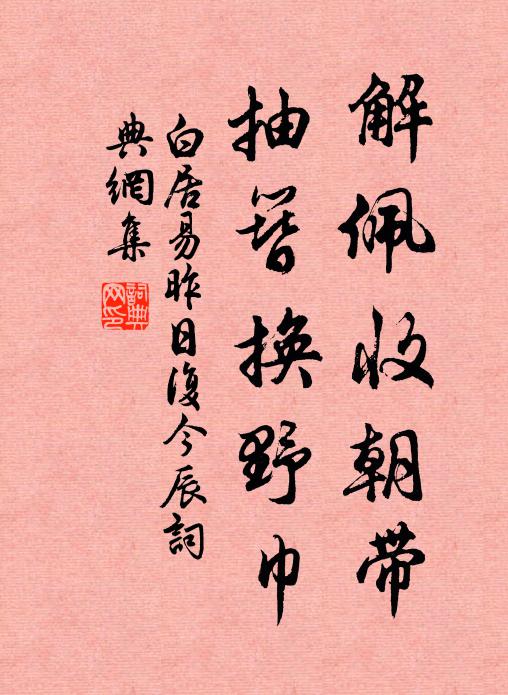 解佩收朝带
抽簪换野巾
白居易昨日復今辰詞
典網集
詞典網印